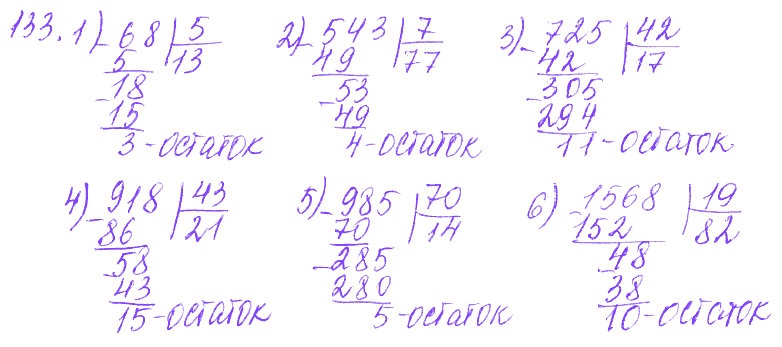 133. 1) 68 | 5 2) 543 | 7 3) 725 | 42
5 | 13 49 | 77 42 | 17
-18 -53 -305
15 49 294
3-остаток 4-остаток 11-остаток
4) 918 | 43 5) 985 | 70 6) 1568 | 19
86 | 21 70 | 14 152 | 82
-58 -285 -48
43 280 38
15-остаток 5-остаток 10-остаток